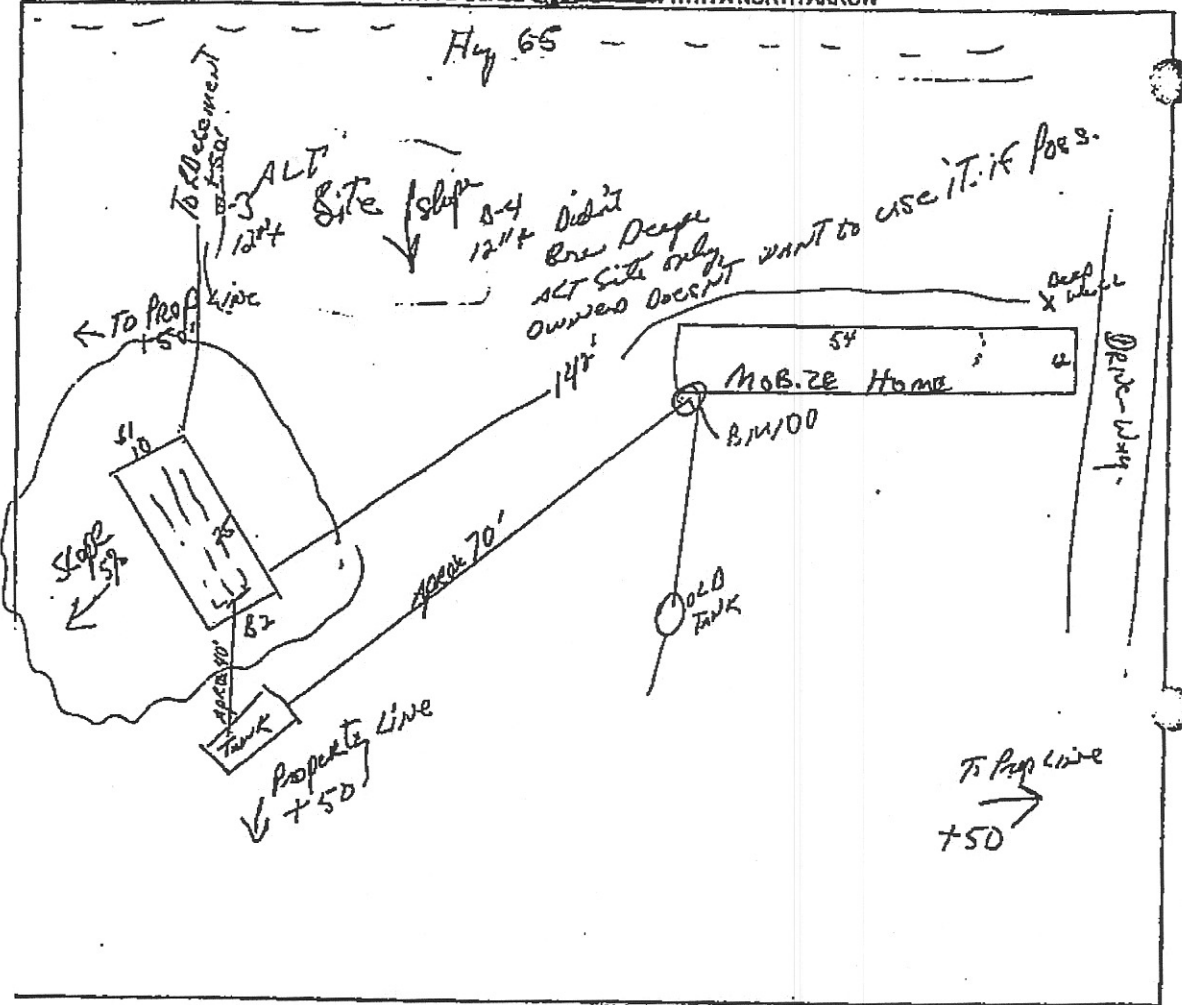 Hwy 65
To RD easement
+50'
B-3
12"+
ALT
Site
slope
B-4
12"+ Didn't
Bore Deeper
ALT Site only
owner Doesn't want to use it if Poss.
← To Prop Line
+50'
Deep
X Well
54
12
Mobile Home
Drive-Way
142'
BM100
B1
10
25
B2
Slope
Aprox 70'
Aprox 40'
OLD
TANK
TANK
Property Line
+50'
To Prop Line
+50